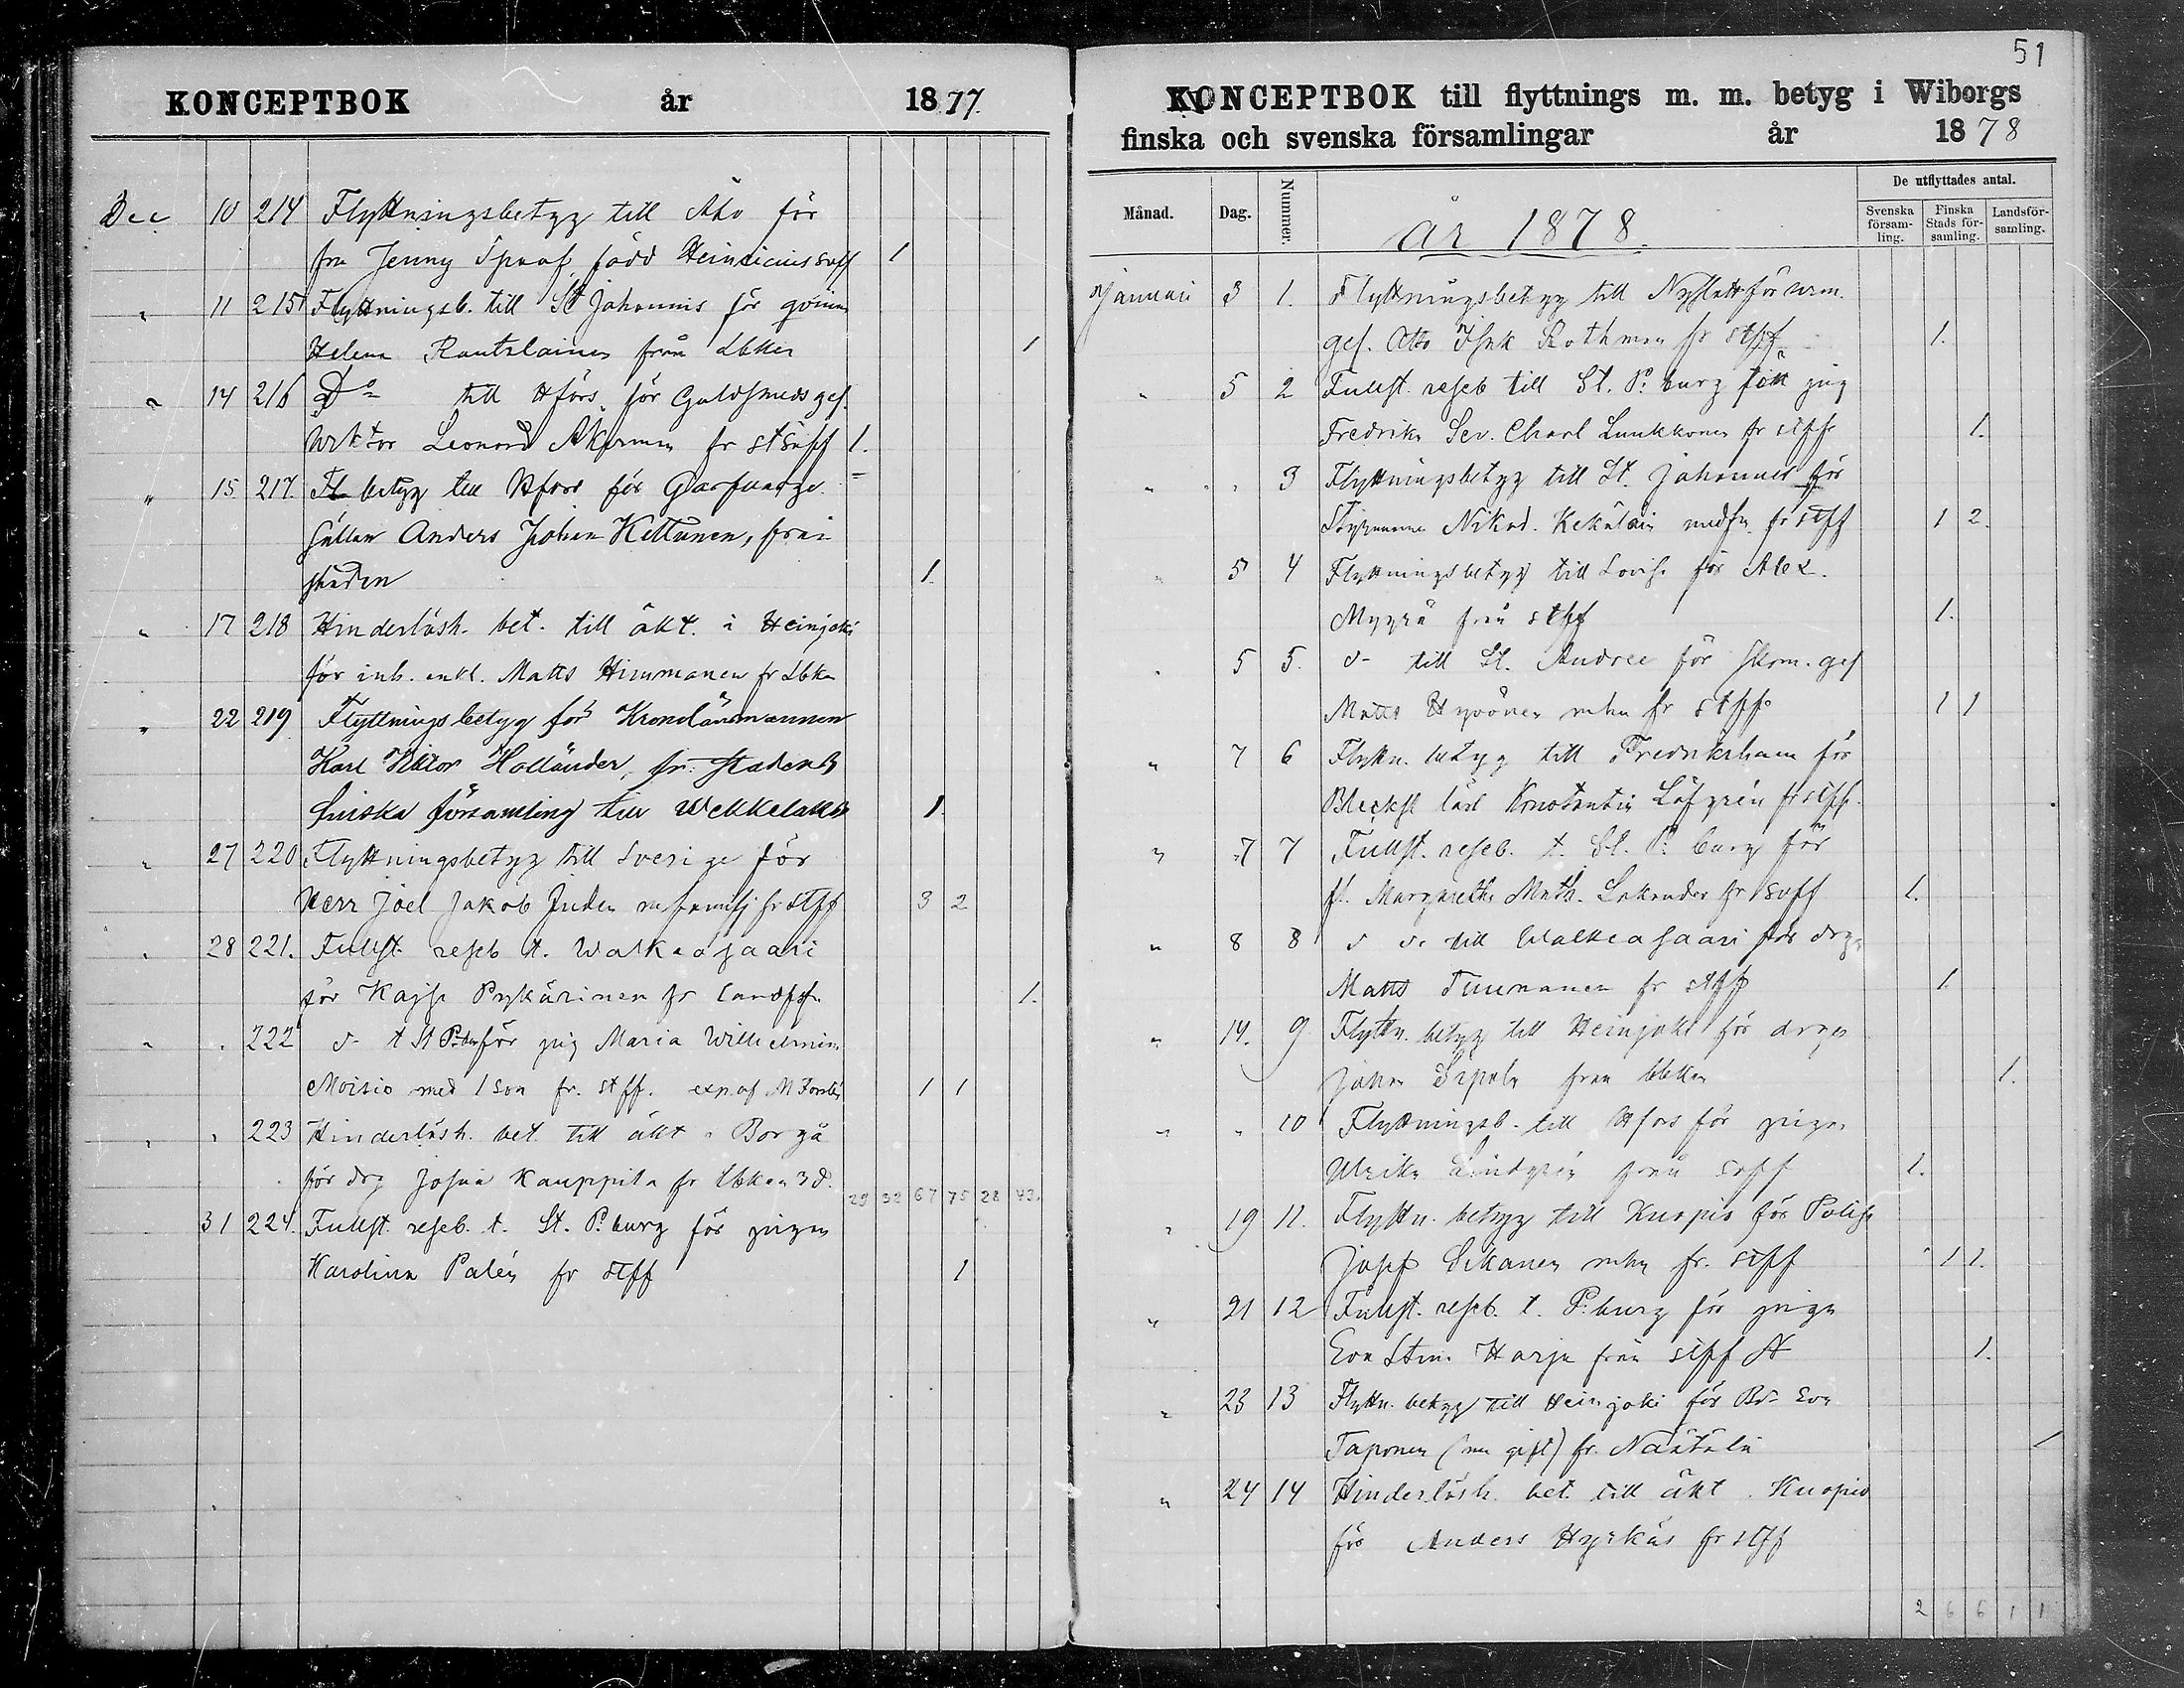 KONCEPTBOK år 1877.
Dec 10 214 Flyttningsbetyg till Åbo för
fru Jenny Spoof, född Heinricius soff 1
" 11 215 Flyttningsb. till St Johannis för qvinn
Helena Rautalainen från Lbkn 1
" 14 216 Do till Hfors för Guldsmedsges.
Viktor Leonard Åkerman fr st 1.
" 15 217. Fl betyg till Hfors för Garfvarge
sällen Anders Johan Kettunen, från
staden 1.
" 17 218 Hinderlösh. bet. till äkt. i Heinjoki
för inh. enkl. Matts Himmanen fr Lbkn
" 22 219 Flyttningsbetyg för Kronolänsmannen
Karl Viktor Holländer, fr. stadens
finska församling till Wekkelaks 1.
" 27 220 Flyttningsbetyg till Sverige för
Herr Joel Jakob Juden m familj fr stff 3 2
" 28 221. Fullst. reseb t. Walkeasaari
för Kajsa Pykärinen fr landsf. 1.
" " 222 d- t St P:burg för pig Maria Wilhelmin.
Moisio med 1 son fr. stff. exp. af M 1 1
" " 223 Hinderlösh. bet till äkt i Borgå
för drg Josua Kauppila fr Lbkn 3 d. 29 32 67 75 28 43.
31 224. Fullst. reseb. t. St. P:burg för pigan
Karolina Palén fr stff 1
51
KONCEPTBOK till flyttnings m. m. betyg i Wiborgs
finska och svenska församlingar år 1878
Månad. Dag. Nummer. år 1878. De utflyttades antal.
Svenska församling. Finska Stads församling. Landsförsamling.
Januari 3 1. Flyttningsbetyg till Nyslott för
ges. Otto Isak Rothman fr stff 1.
" 5 2 Fullst. reseb till St. P:burg för pig
Fredrika Sev. Charl Luukkonen fr stff 1.
" " 3 Flyttningsbetyg till St. Johannes för
Styrman Nikod. Kekäläin med fr stff 1 2.
" 5 4 Flyttningsbetyg till Lovisa för Alex.
Myyrä från stff 1.
" 5 5. d- till St. Andree för skom. ges
Matts Hyvönen m hu fr stff 1 1
" 7 6 Flyttn. betyg till Fredrikshamn för
Blecksl lärl Konstantin Löfgrén fr stff.
" 7 7 Fullst. reseb. t. St. P:burg för
fl. Margaretha Math. fr soff 1.
" 8 8 d d- till Walkeasaari för drgn
Matts Tuunanen fr stff 1.
" 14. 9 Flyttn. betyg till Heinjoki för drgen
Johan Sipola från Lbkn 1.
" " 10 Flyttningsb. till Hfors för pigan
Ulrika Lindgrén från soff 1.
" 19 11. Flyttn. betyg till Kuopio för Polis
Josef Sikanen m hu fr. stff 1 1.
" 21 12 Fullst. reseb. t. P:burg för pigan
Eva Stin. Harju från stff 1.
" 23 13 Flyttn. betyg till Heinjoki för Bd- Eva
Taponen (nu gift) fr. Näätälä 1
" 24 14 Hinderlösh. bet. till äkt i Kuopio
för Anders Hyrkäs fr stff
2 6 6 1 1